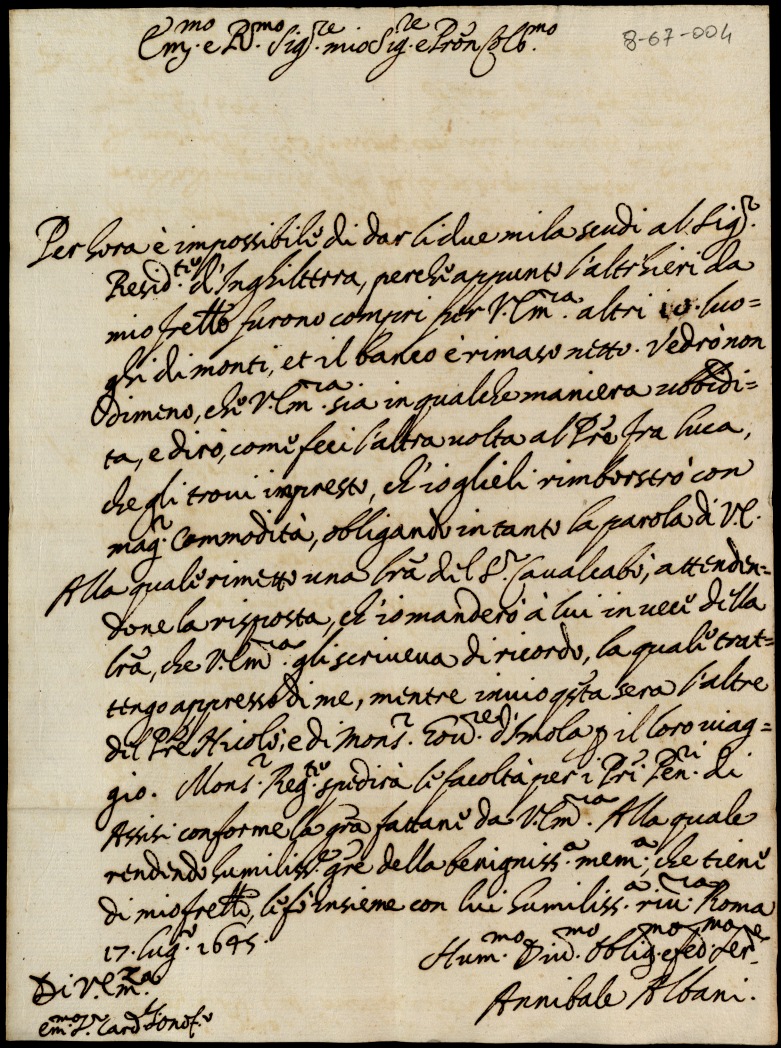 8-67-004
Em.mo e R.mo Sig.re mio Sig.re e Pron Col.mo
Per hora è impossibile di dar li due mila scudi al Sig.r
Resid.te d'Inghilterra, perche appunto l'altrhieri da
mio frello furono compri per V. Em.za altri 10. luo=
ghi di monti, et il banco è rimaso netto. Vedrò non
dimeno, che V. Em.za sia in qualche maniera ubbidi=
ta, e dirò, come feci l'altra uolta al Pre fra luca,
che gli troui impresto, ch'io glieli rimborserò con
mag.r Commodità, obligando intanto la parola di V. E.
Alla quale rimetto una lra del S.r Caualcabò, attenden=
done la risposta, ch'io manderò à lui in uece della
lra, che V. Em.za gli scriueua di ricordo, la quale trat=
tengo appresso di me, mentre inuio q̃sta sera l'altre
del Pre Nicolò, e di Mons.r Gou.re d'Imola p il loro uiag=
gio. Mons.r Reg.te spedirà le facoltà per i Pri Pen.ri di
Assisi conforme la gra fattane da V. Em.za. Alla quale
rendendo humiliss.e gre della benigniss.a mem.a, che tiene
di mio frello, le fò insieme con lui humiliss.a riu.za Roma
17. lug.o 1645.
Di V. Em.za
Hum.mo Diu.mo Oblig.mo e fed.mo Ser.re
Annibale Albani.
Em.mo S.r Card.